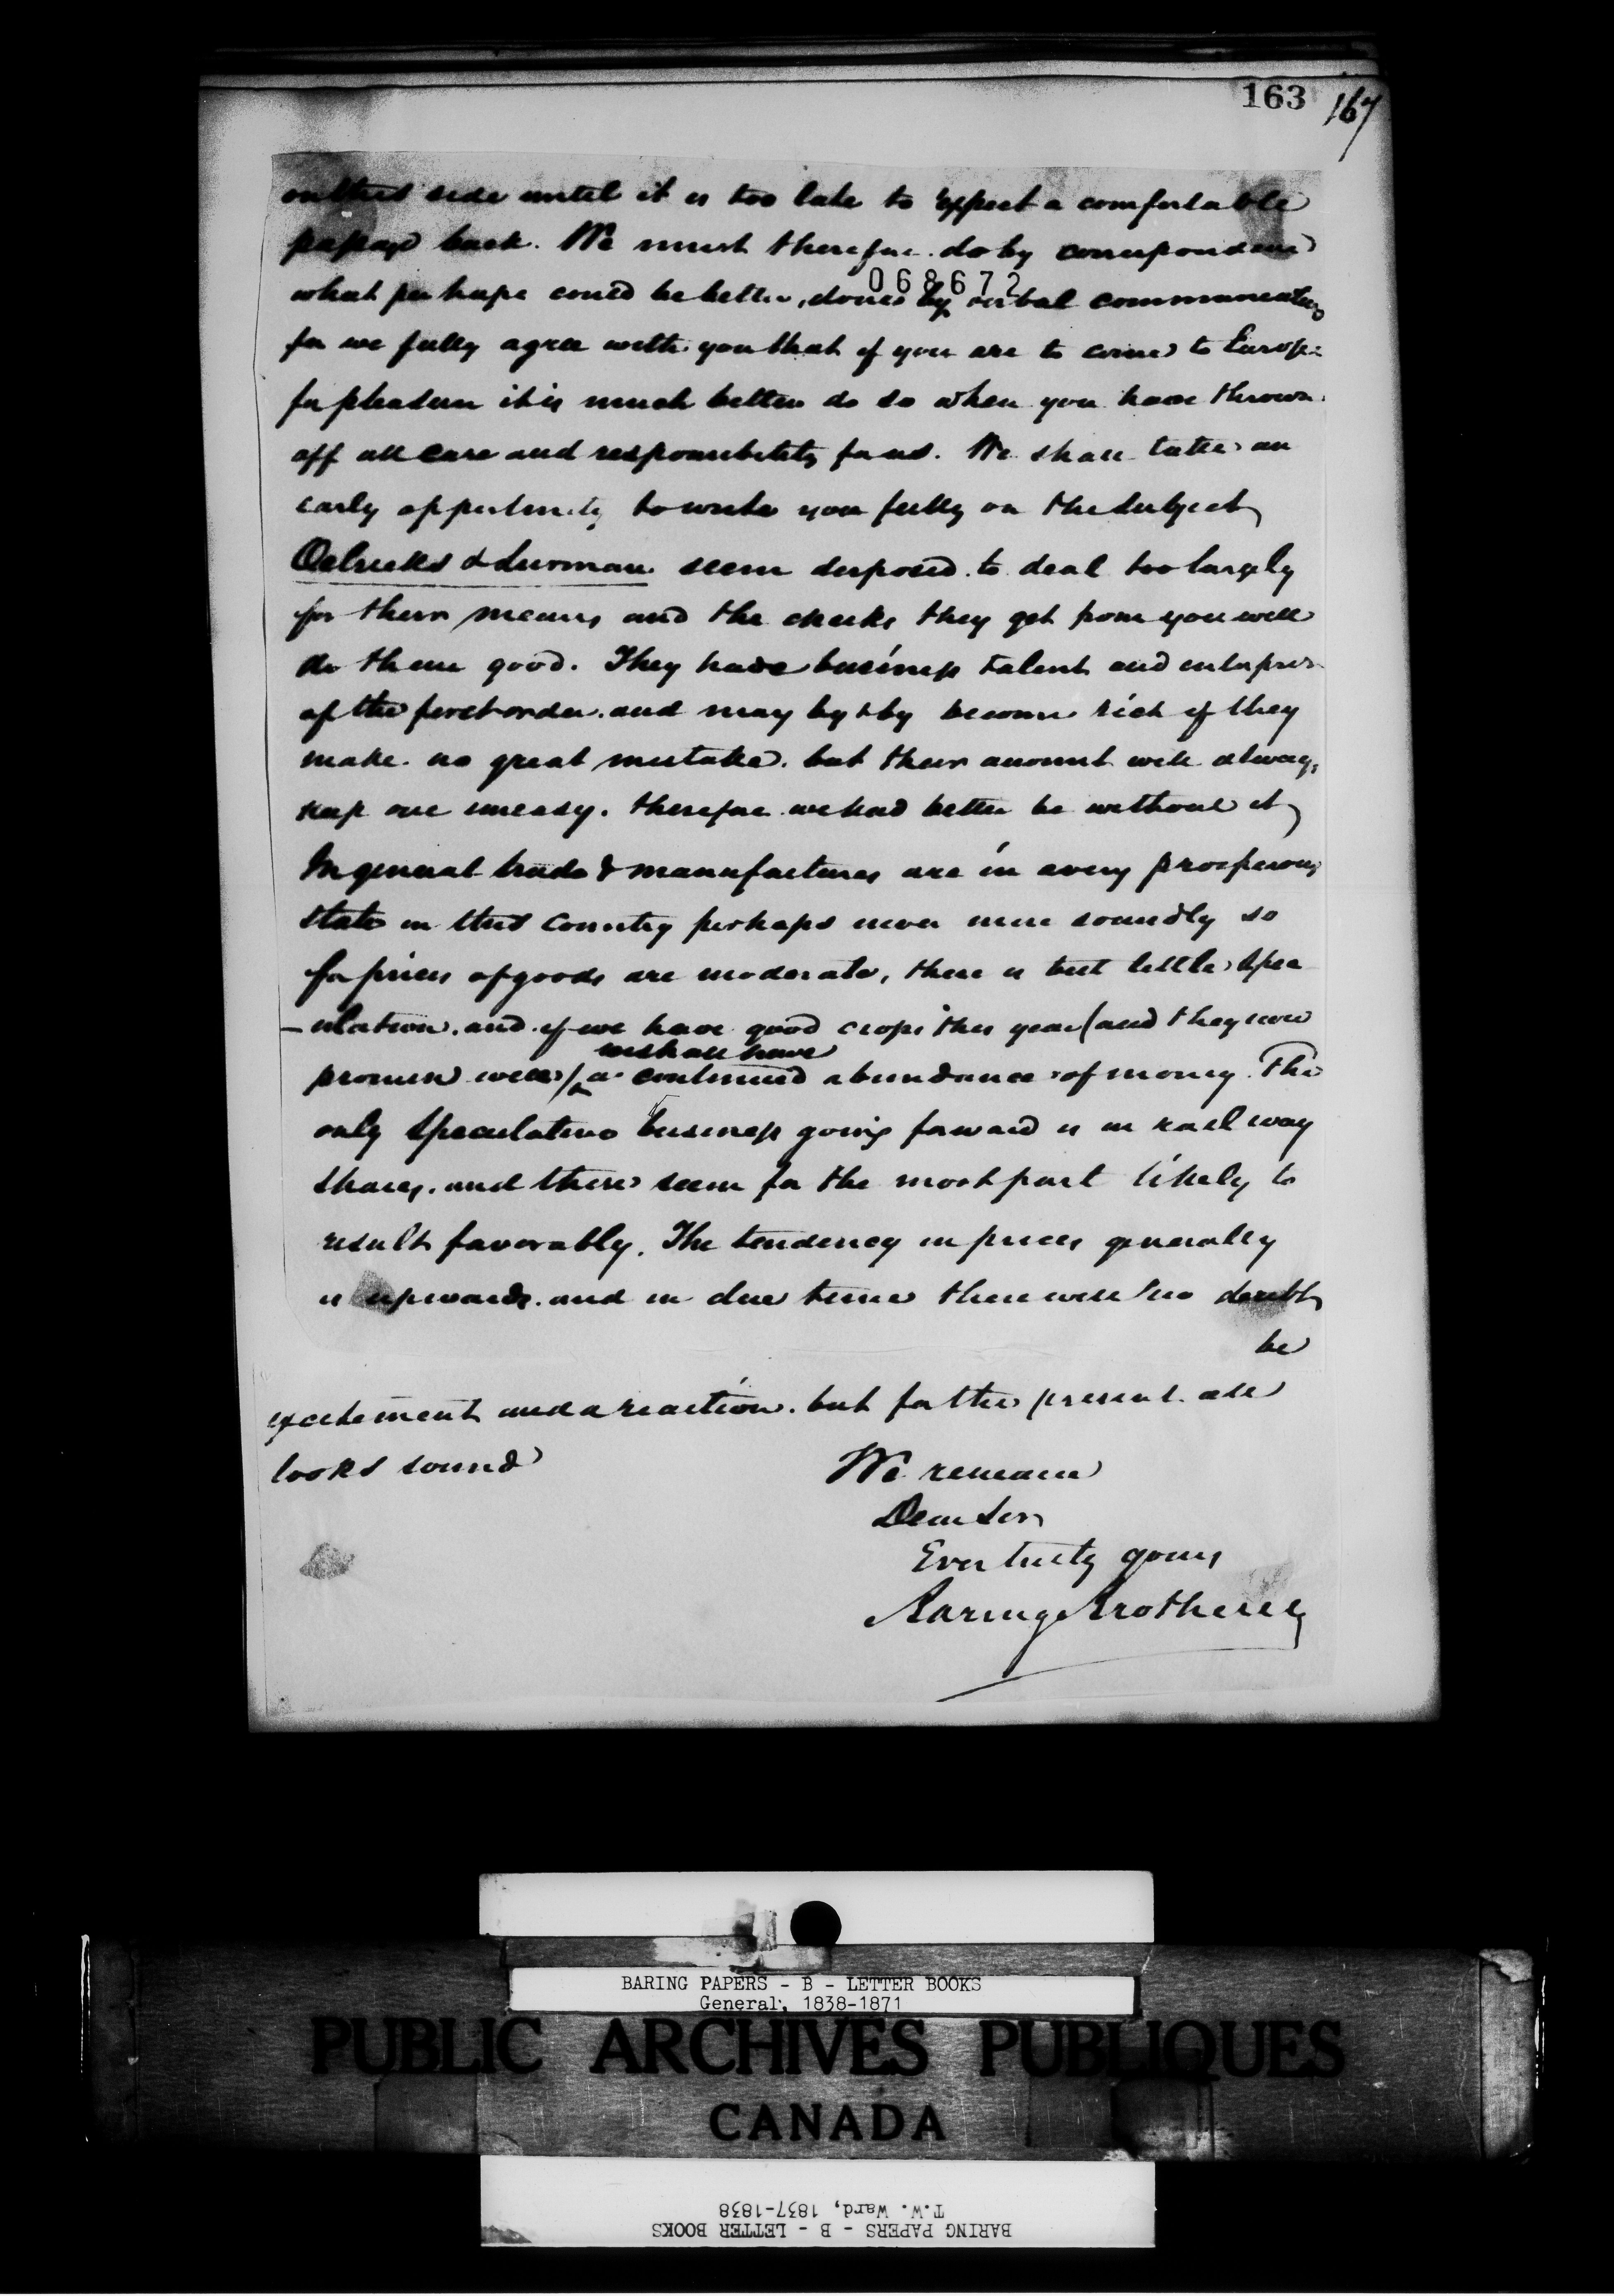 163 167
on this side until it is too late to expect a comfortable
passage back. We must therefore do by correspondence
068672
what perhaps could be better done by verbal communication
for we fully agree with you that if you are to come to Europe
for pleasure it is much better do so when you have thrown
off all care and responsibility for us. We shall take an
early opportunity to write you fully on the subject
Oelricks & Lurman seem disposed to deal too largely
for their means and the checks they get from you will
do them good. They have business talent and enterprise
of the first order and may by & by become rich if they
make no great mistake. but their account will always
keep one uneasy. therefore we had better be without it
In general trade & manufactures are in a very prosperous
state in this Country perhaps never more soundly so
for prices of goods are moderate, there is but little spec
-ulation. and if we have good crops this year (and they now
we shall have
promise well) a continued abundance of money. The
only speculative business going forward is in rail way
shares. and these seem for the most part likely to
result favorably. The tendency in prices generally
is upwards. and in due time there will no doubt
be
excitement and a reaction. but for the present all
looks sound
We remain
Dear Sir
Ever truly yours
Baring Brothers
BARING PAPERS - B - LETTER BOOKS
General, 1838-1871
PUBLIC ARCHIVES PUBLIQUES
CANADA
T.W. Ward, 1837-1838
BARING PAPERS - B - LETTER BOOKS